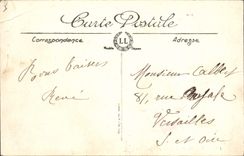 Carte Postale
Correspondance
Adresse
LL
Bons baisers
René
Monsieur Calbet
81, rue
Versailles
S. et Oise